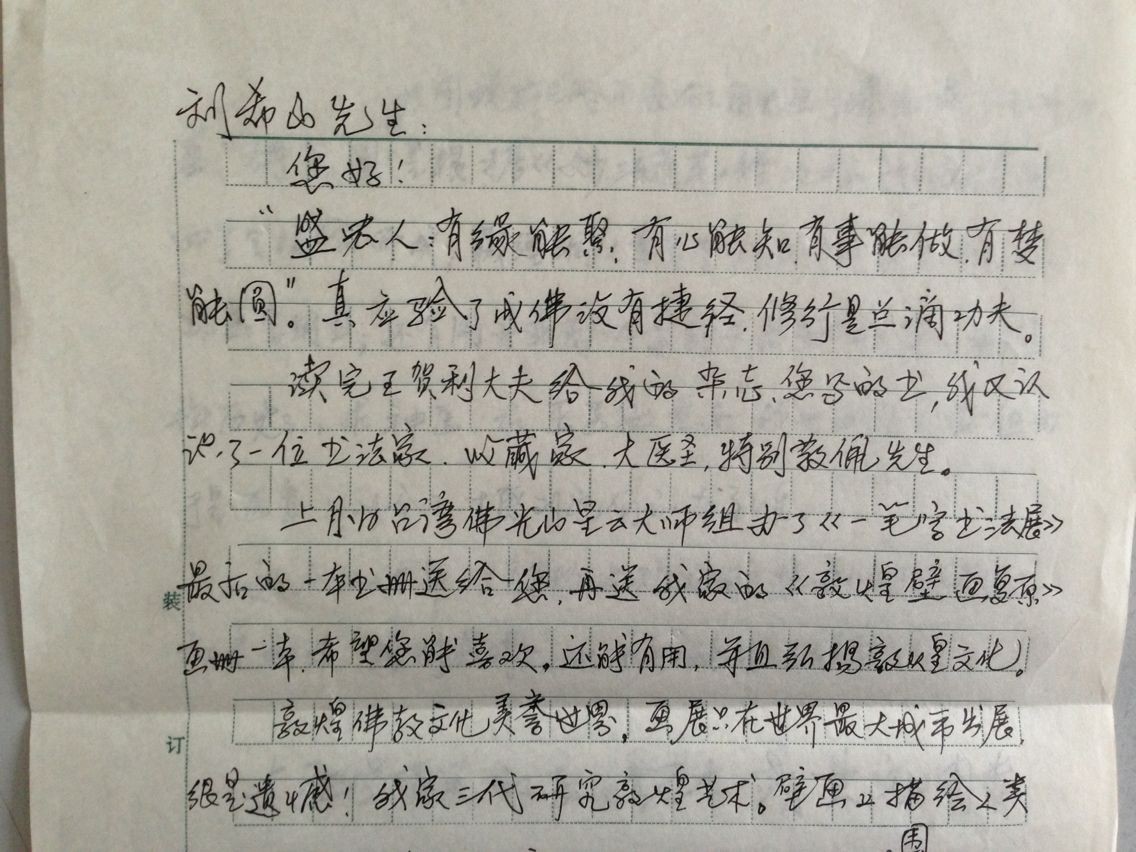 刘希山先生：
您好！
“盛世人：有缘能聚，有心能知，有事能做，有梦
能圆”。真应验了成佛没有捷径，修行是点滴功夫。
读完王贺利大夫给我的杂志、您写的书，我又认
识了一位书法家、收藏家、大医圣，特别敬佩先生。
上月份台湾佛光山星云大师组办了《一笔字书法展》
最后的一本书册送给您，再送我家的《敦煌壁画复原》
画册一本，希望您能喜欢。还能有用，并且弘扬敦煌文化。
敦煌佛教文化美誉世界，画展只在世界最大城市出展，
很是遗憾！我家三代研究敦煌艺术。壁画上描绘人类
装
订